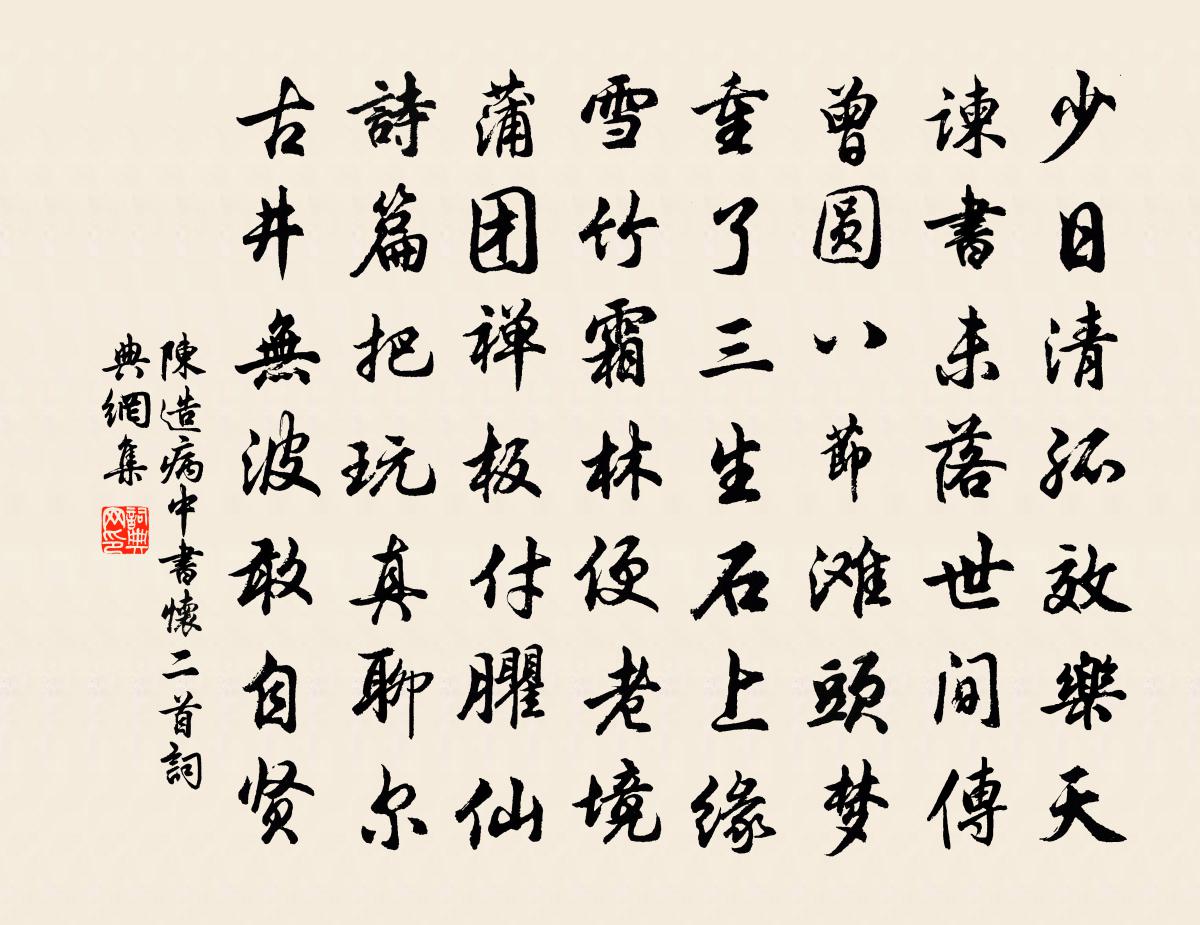 少日清孤效樂天
諫書未落世間傳
曾圆八節滩頭梦
重了三生石上緣
雪竹霜林便老境
蒲团禅板付臞仙
詩篇把玩真聊尔
古井無波敢自贤
陳造病中書懷二首詞
典網集
詞典
网印